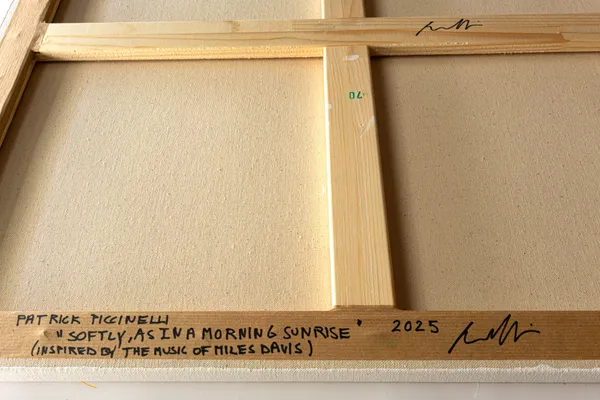 70.
PATRICK PICCINELLI
"SOFTLY, AS IN A MORNING SUNRISE" 2025
(INSPIRED BY THE MUSIC OF MILES DAVIS)